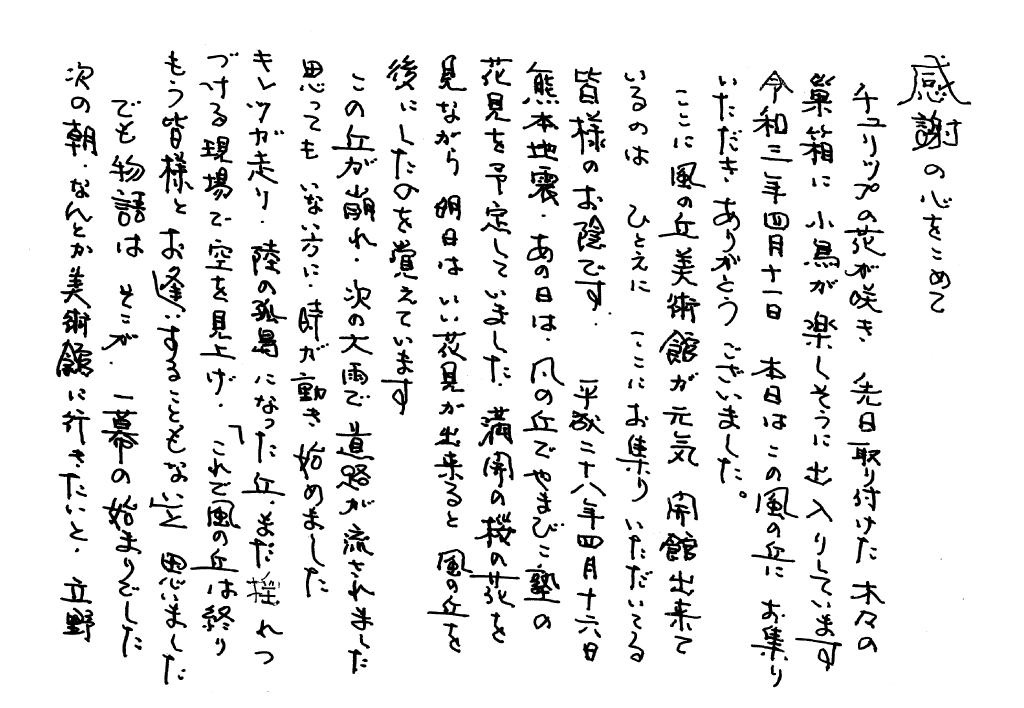 感謝の心をこめて
チュリップの花が咲き 先日取り付けた木々の
巣箱に小鳥が楽しそうに出入りしています
令和三年四月十一日 本日はこの風の丘にお集り
いただき、ありがとうございました。
ここに風の丘美術館が元気 開館出来て
いるのは ひとえに ここにお集りいただいてる
皆様のお陰です. 平成二十八年四月十六日
熊本地震、あの日は、風の丘でやまびこ塾の
花見を予定していました、満開の桜の花を
見ながら 明日はいい花見が出来ると 風の丘を
後にしたのを覚えています
この丘が崩れ、次の大雨で道路が流されました
思ってもいない方に、時が動き始めました
キレツが走り、陸の孤島になった丘、まだ揺れつ
づける現場で空を見上げ、「これで風の丘は終り
もう皆様とお逢いすることもない」と 思いました
でも物語は そこが、一幕の始まりでした
次の朝、なんとか美術館に行きたいと、立野